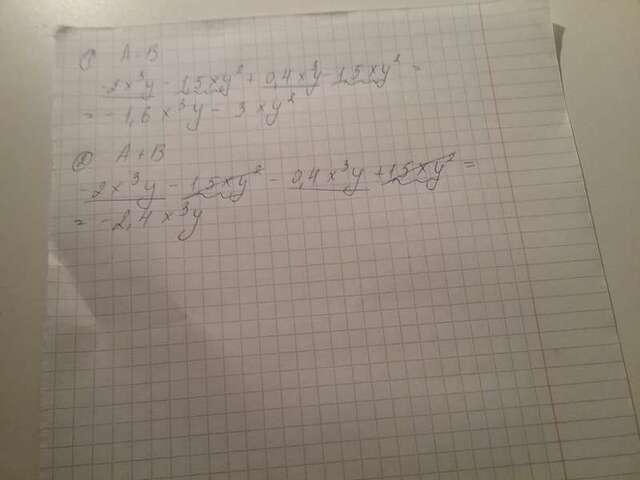 ① A-B
-2x³y - 1,5xy² + 0,4x³y - 1,5xy² =
= -1,6x³y - 3xy²
② A+B
-2x³y - 1,5xy² - 0,4x³y + 1,5xy² =
= -2,4x³y